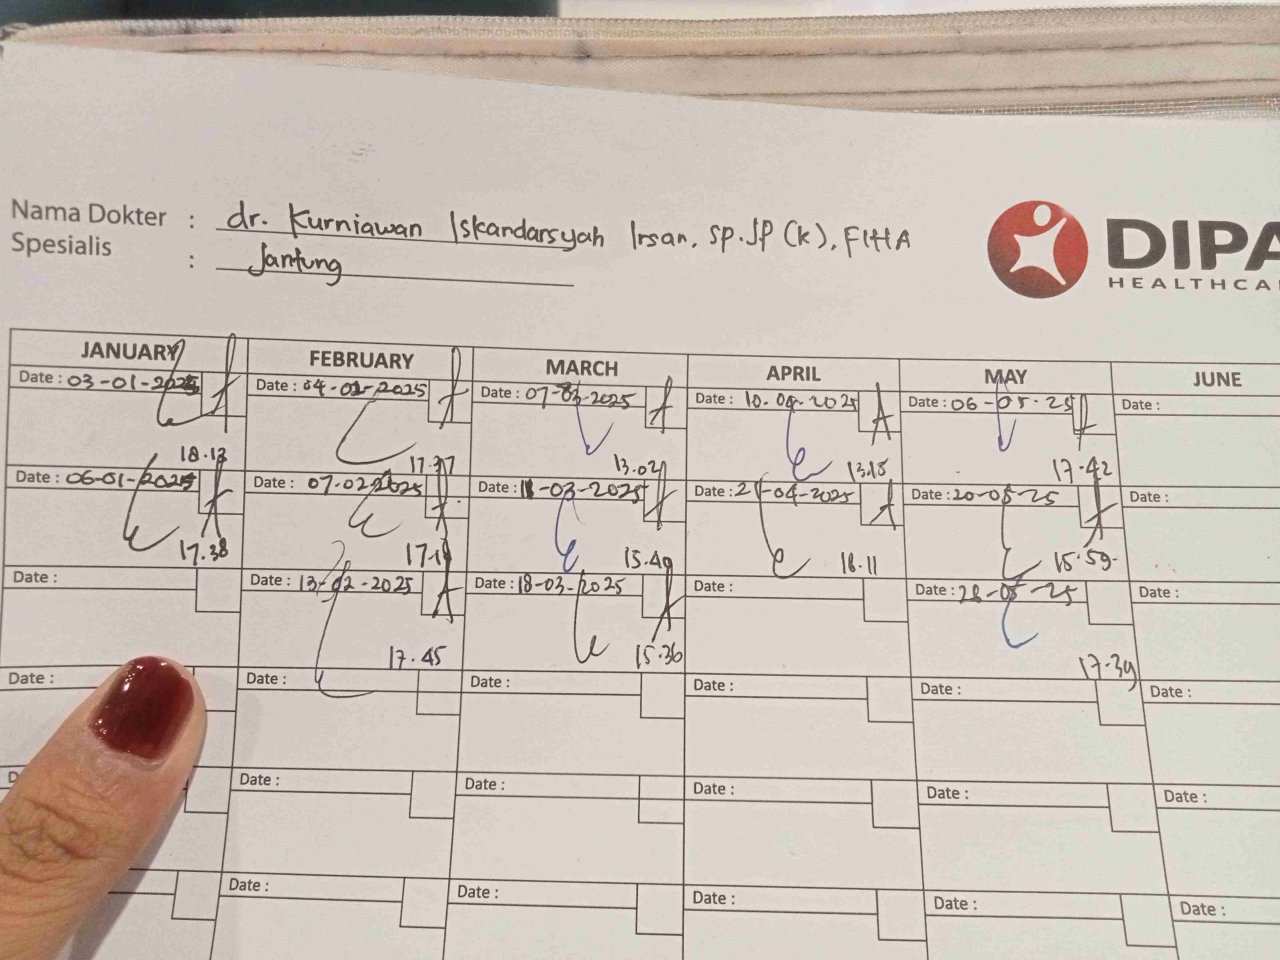 Nama Dokter : dr. Kurniawan Iskandarsyah Irsan, Sp.JP (K), FIHA
Spesialis : Jantung
DIPA
HEALTHCA
JANUARY FEBRUARY MARCH APRIL MAY JUNE
Date : 03-01-2025 Date : 04-02-2025 Date : 07-03-2025 Date : 10.04.2025 Date : 06-05-25 Date :
18.13 17.37 13.02 13.15 17.42
Date : 06-01-2025 Date : 07.02.2025 Date : 11-03-2025 Date : 21-04-2025 Date : 20-05-25 Date :
17.38 17.19 15.49 16.11 15.59
Date : Date : 13-02-2025 Date : 18-03-2025 Date : Date : 28-05-25 Date :
17.45 15.36 17.39
Date : Date : Date : Date : Date : Date :
Date : Date : Date : Date : Date :
Date : Date : Date : Date : Date :